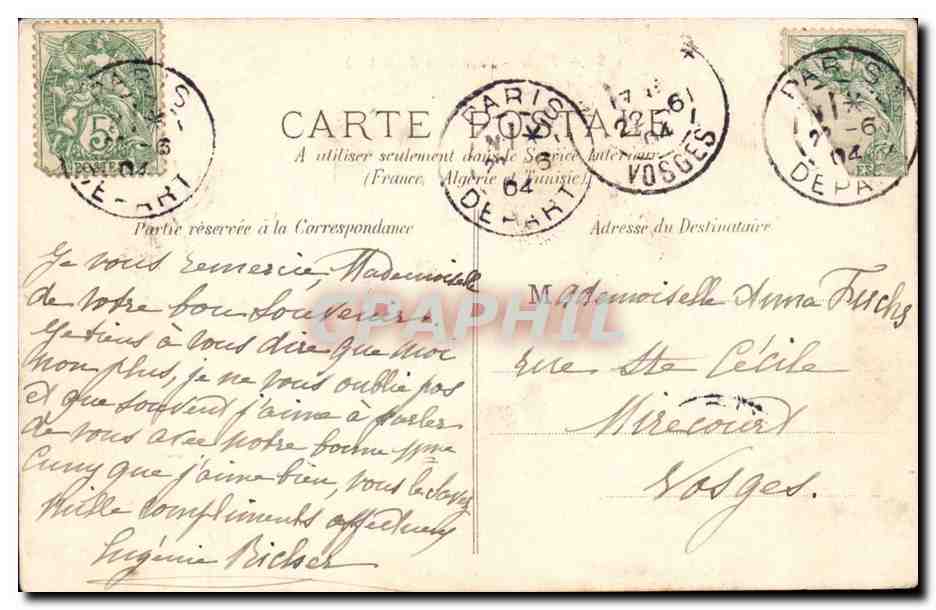 CARTE POSTALE
A utiliser seulement dans le Service Intérieur
(France, Algérie et Tunisie)
Partie réservée à la Correspondance
Adresse du Destinataire
Je vous remercie, Mademoiselle
de votre bon souvenir.
Je tiens à vous dire que moi
non plus, je ne vous oublie pas
et que souvent j'aime à parler
de vous avec notre bonne Mme
Cuny que j'aime bien, vous le savez
Mille compliments affectueux
Eugénie Richer
Mademoiselle Anna Fuchs
rue Ste Cécile
Mirecourt
Vosges.
PARIS
6
04
DEPART
PARIS
6
04
DEPART
22 - 6
04
VOSGES
PARIS
6
04
DEPA
5c
POSTE
CPAPHIL